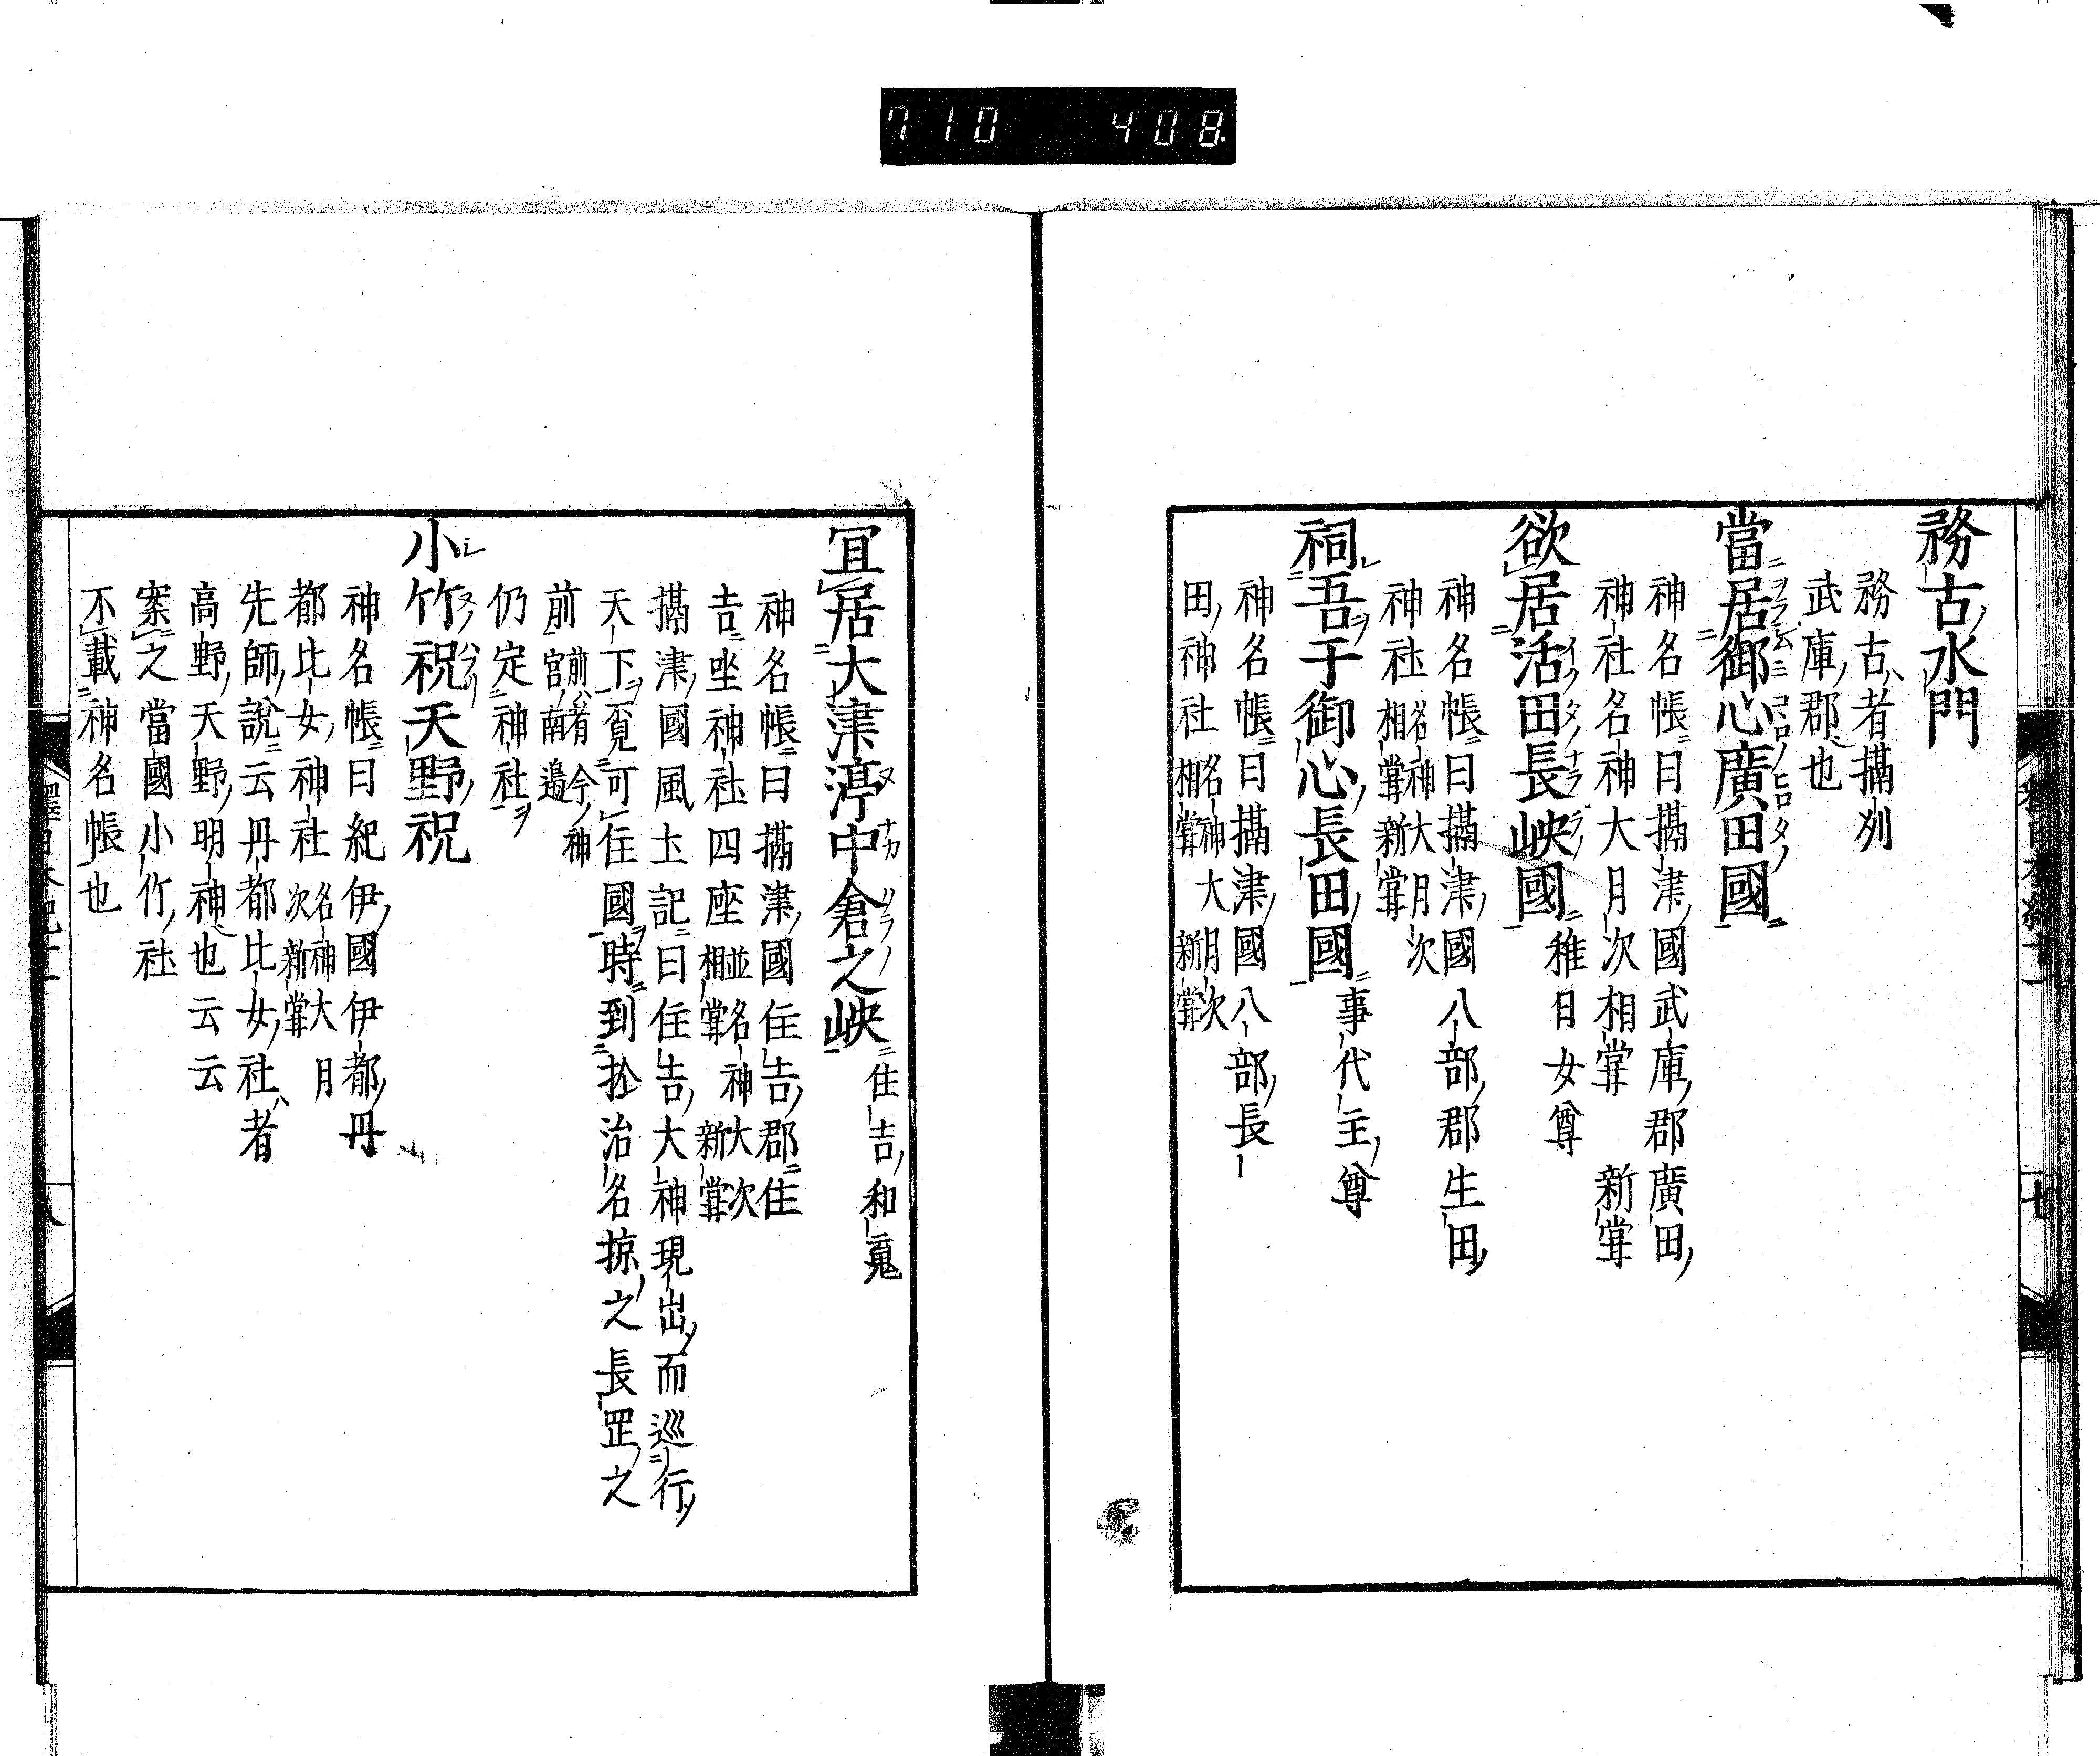 710 408
務古水門
務古者攝州
武庫郡也
當居御心廣田國
神名帳曰攝津國武庫郡廣田
神社名神大月次相甞 新甞
欲居活田長峽國 稚日女尊
神名帳曰攝津國八部郡生田
神社名神大月次
相甞新甞
祠吾于御心長田國 事代主尊
神名帳曰攝津國八部長
田神社名神大月次
相甞新甞
宜居大津渟中倉之峽 住吉和䰟
神名帳曰攝津國住吉郡住
吉坐神社四座並名神大次
相甞 新甞
攝津國風土記曰住吉大神現出而巡行
天下覓可住國時到於沼名掠之長岡之
前前者今神
宮南邊
仍定神社
小竹祝天野祝
神名帳曰紀伊國伊都丹
都比女神社名神大月
次新甞
先師說云丹都比女社者
高野天野明神也云云
案之當國小竹社
不載神名帳也